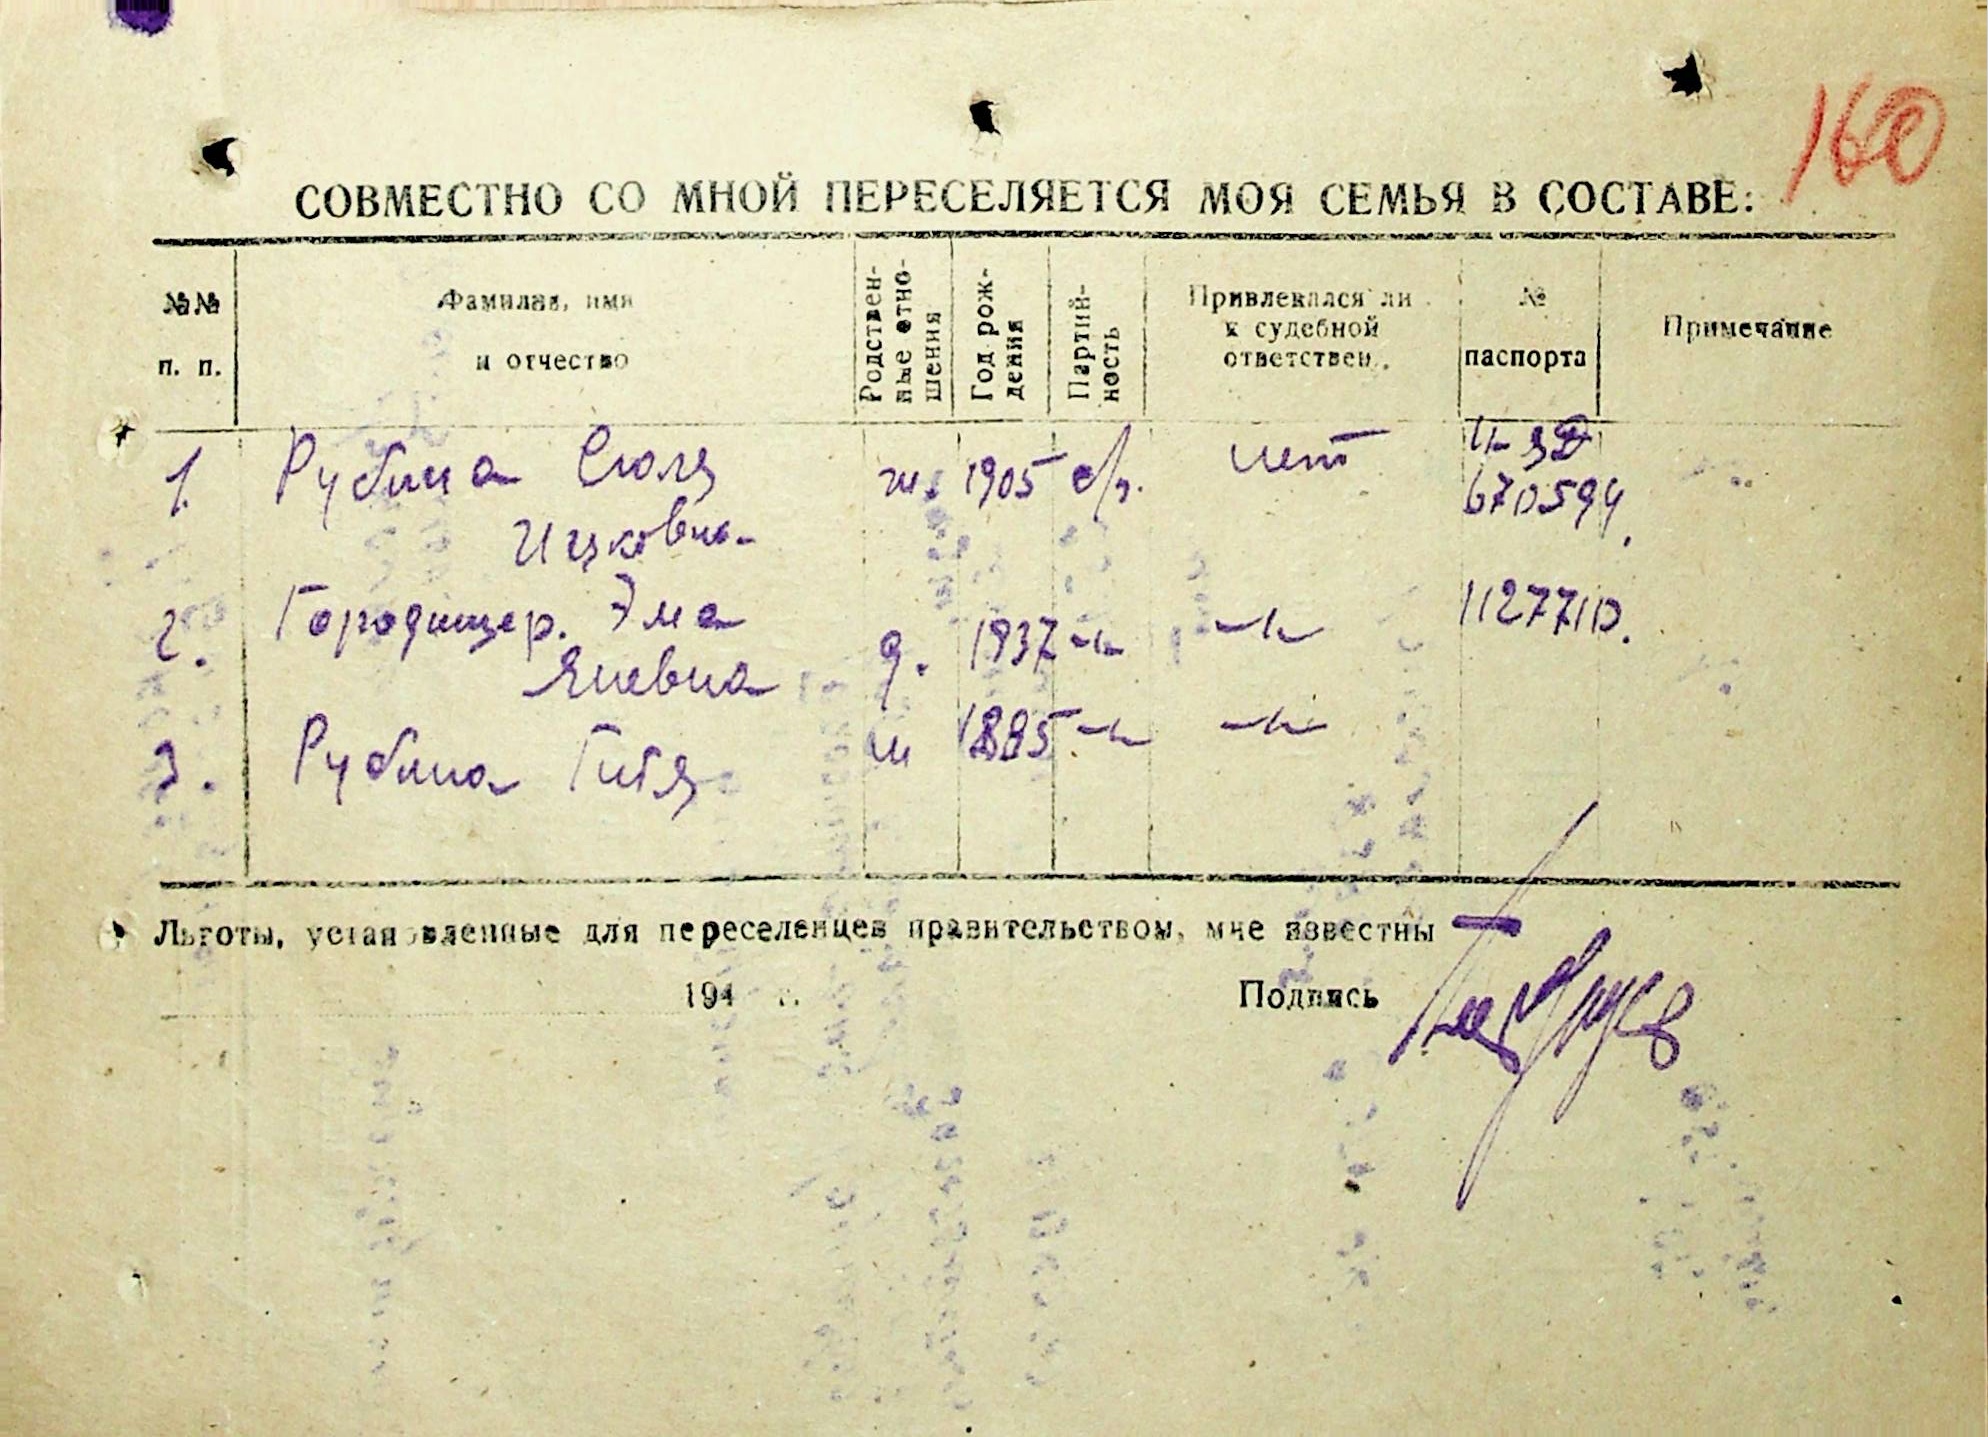 160
СОВМЕСТНО СО МНОЙ ПЕРЕСЕЛЯЕТСЯ МОЯ СЕМЬЯ В СОСТАВЕ:
№№ п. п. Фамилия, имя и отчество Родственные отношения Год рождения Партийность Привлекался ли к судебной ответствен. № паспорта Примечание
1. Рубина Сюля ж. 1905 б/п. нет
Ицковна 670594
2. Городищер. Эма д. 1937 -〃- -〃- 1127710.
Яневна
3. Рубина Гитя м 1885 -〃- -〃-
Льготы, установленные для переселенцев правительством, мне известны
194 г. Подпись